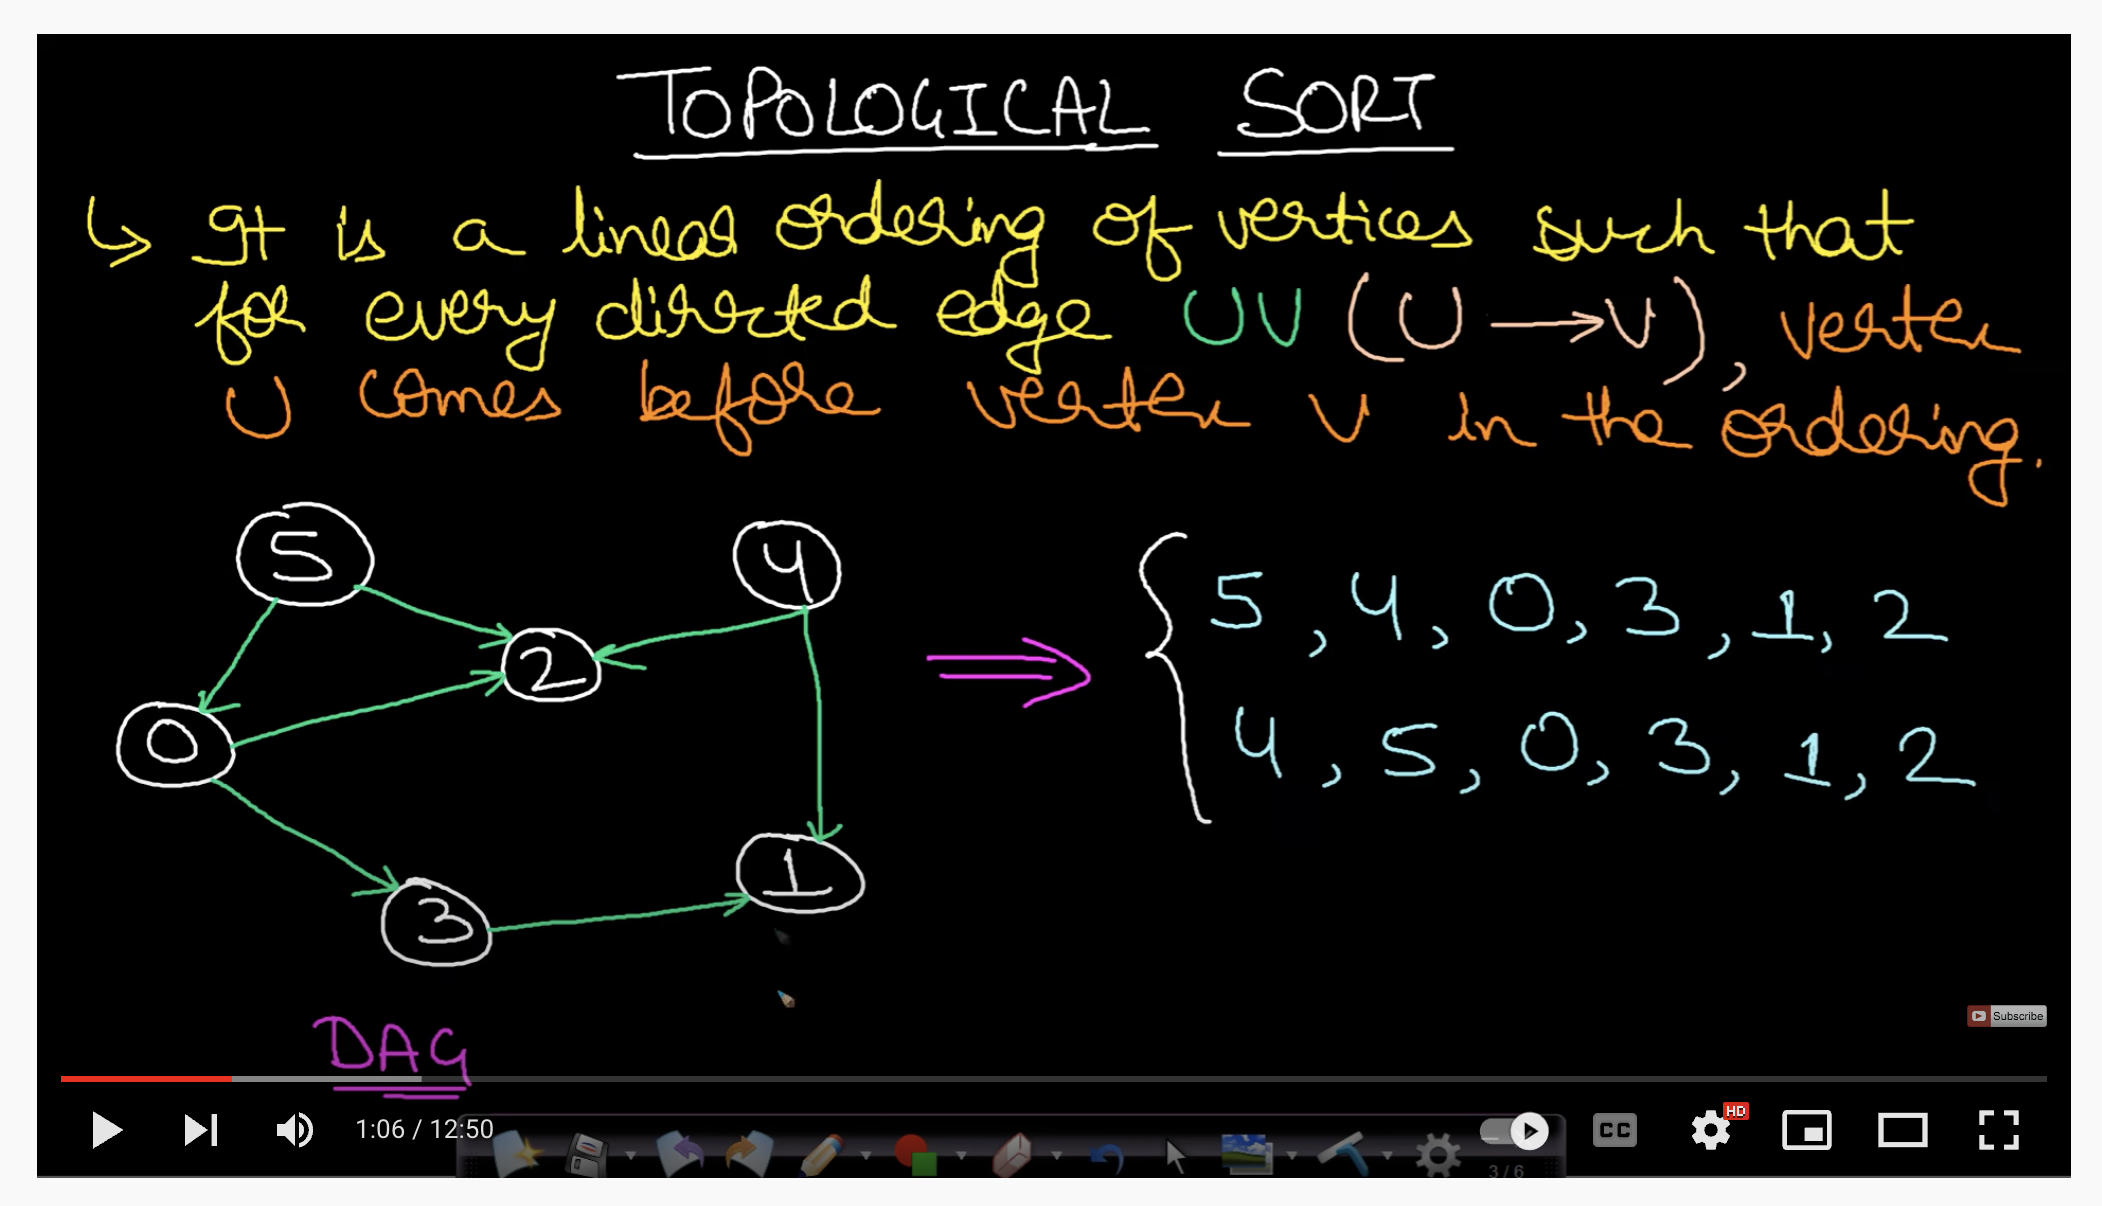 TOPOLOGICAL SORT
↳ It is a linear ordering of vertices such that
for every directed edge UV (U → V), vertex
U comes before vertex V in the ordering.
5
4
2
0
1
3
⇒
5, 4, 0, 3, 1, 2
4, 5, 0, 3, 1, 2
DAG
Subscribe
1:06 / 12:50
CC
HD
3 / 6